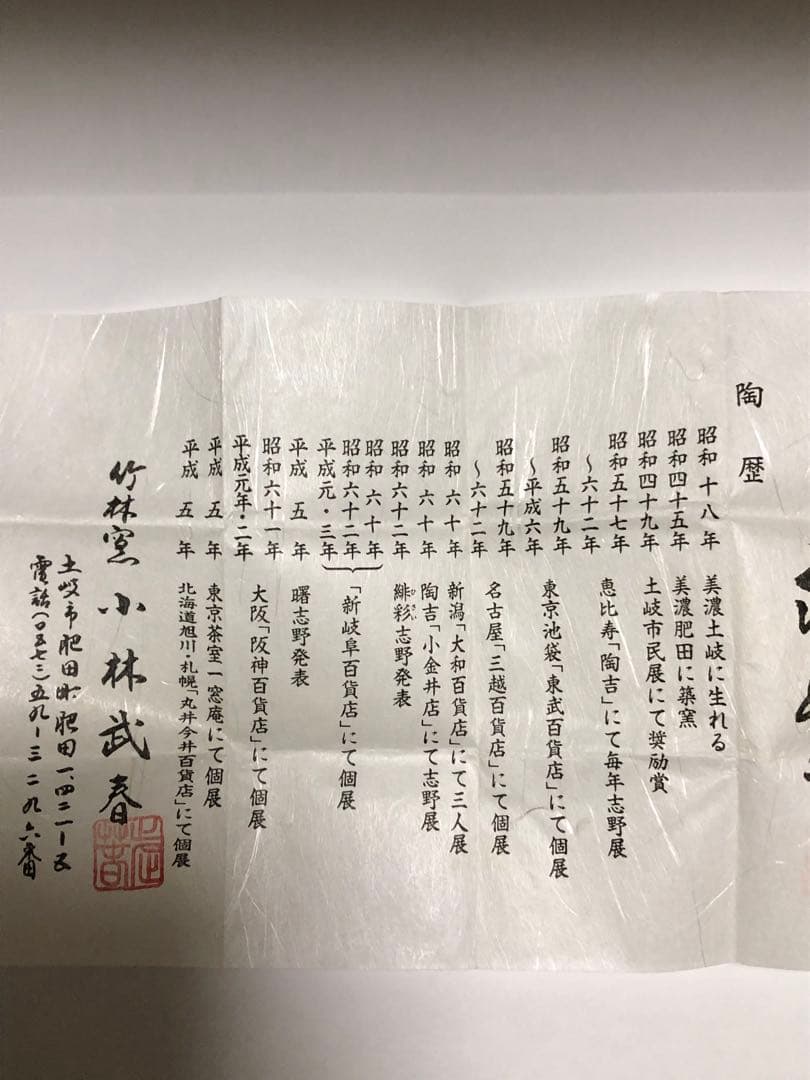 陶歴
昭和十八年 美濃土岐に生れる
昭和四十五年 美濃肥田に築窯
昭和四十九年 土岐市民展にて奨励賞
昭和五十七年
〜六十二年 恵比寿「陶吉」にて毎年志野展
昭和五十九年
〜平成六年 東京池袋「東武百貨店」にて個展
昭和五十九年
〜六十二年 名古屋「三越百貨店」にて個展
昭和六十年 新潟「大和百貨店」にて三人展
昭和六十年 陶吉「小金井店」にて志野展
昭和六十二年 緋彩志野発表
昭和六十年
昭和六十二年
平成元・三年 「新岐阜百貨店」にて個展
平成五年 曙志野発表
昭和六十一年 大阪「阪神百貨店」にて個展
平成元年・二年
平成五年 東京茶室一窓庵にて個展
平成五年 北海道旭川・札幌「丸井今井百貨店」にて個展
竹林窯 小林武春
土岐市肥田町肥田一、四二一ー五
電話(〇五七二)五九ー三二九六番